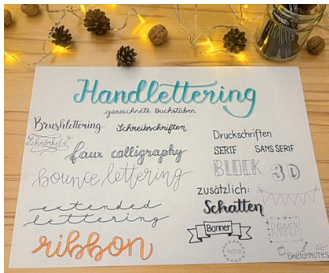 Handlettering
gezeichnete Buchstaben
Brushlettering
Schreibschriften
Schnörkel
faux calligraphy
bounce lettering
extended
lettering
ribbon
Druckschriften
SERIF SANS SERIF
BLOCK 3D
zusätzlich:
Schatten
Banner
RAHMEN